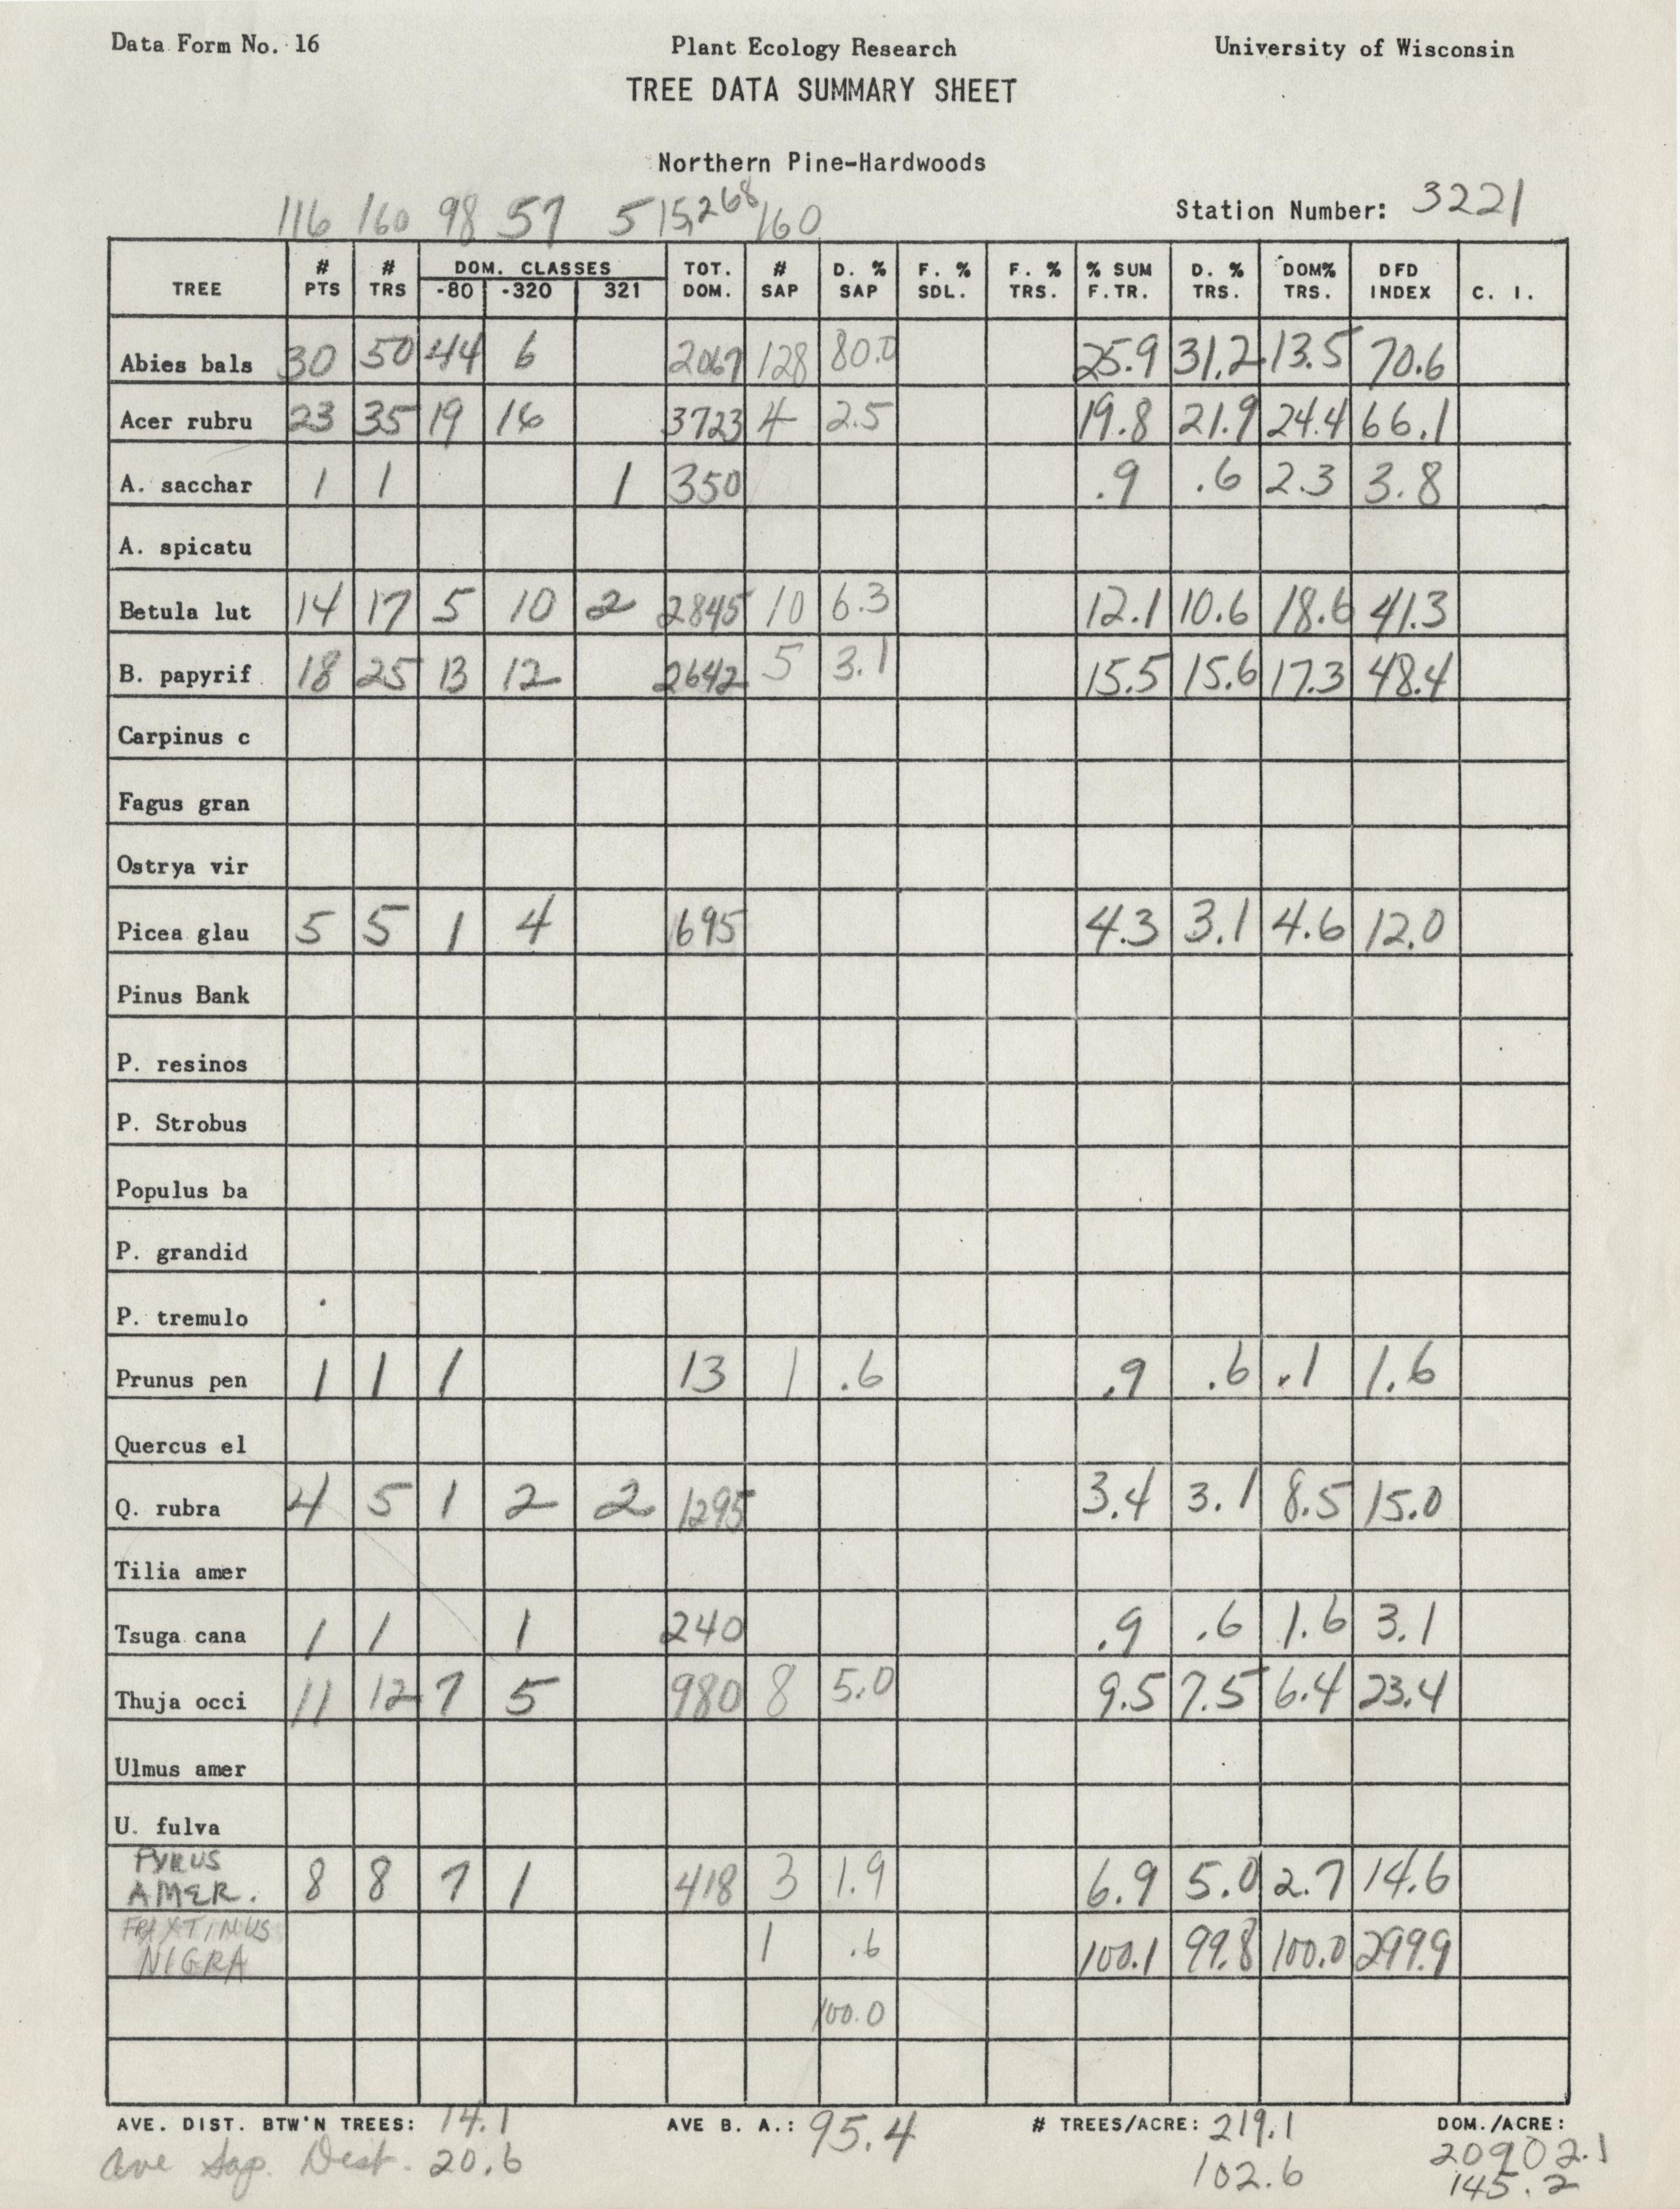 Data Form No. 16 Plant Ecology Research University of Wisconsin
TREE DATA SUMMARY SHEET
Northern Pine-Hardwoods
Station Number: 3221
116 160 98 57 5 15,268 160
TREE # PTS # TRS DOM. CLASSES -80 -320 321 TOT. DOM. # SAP D. % SAP F. % SDL. F. % TRS. % SUM F. TR. D. % TRS. DOM% TRS. DFD INDEX C. I.
Abies bals 30 50 44 6 2067 128 80.0 25.9 31.2 13.5 70.6
Acer rubru 23 35 19 16 3723 4 2.5 19.8 21.9 24.4 66.1
A. sacchar 1 1 1 350 .9 .6 2.3 3.8
A. spicatu
Betula lut 14 17 5 10 2 2845 10 6.3 12.1 10.6 18.6 41.3
B. papyrif 18 25 13 12 2642 5 3.1 15.5 15.6 17.3 48.4
Carpinus c
Fagus gran
Ostrya vir
Picea glau 5 5 1 4 695 4.3 3.1 4.6 12.0
Pinus Bank
P. resinos
P. Strobus
Populus ba
P. grandid
P. tremulo
Prunus pen 1 1 1 13 1 .6 .9 .6 .1 1.6
Quercus el
Q. rubra 4 5 1 2 2 1295 3.4 3.1 8.5 15.0
Tilia amer
Tsuga cana 1 1 1 240 .9 .6 1.6 3.1
Thuja occi 11 12 7 5 980 8 5.0 9.5 7.5 6.4 23.4
Ulmus amer
U. fulva
PYRUS AMER. 8 8 7 1 418 3 1.9 6.9 5.0 2.7 14.6
FRAXTINUS NIGRA 1 .6 100.1 99.8 100.0 299.9
100.0
AVE. DIST. BTW'N TREES: 14.1 AVE B. A.: 95.4 # TREES/ACRE: 219.1 DOM./ACRE: 20902.1
Ave Sap. Dist. 20.6 102.6 145.2